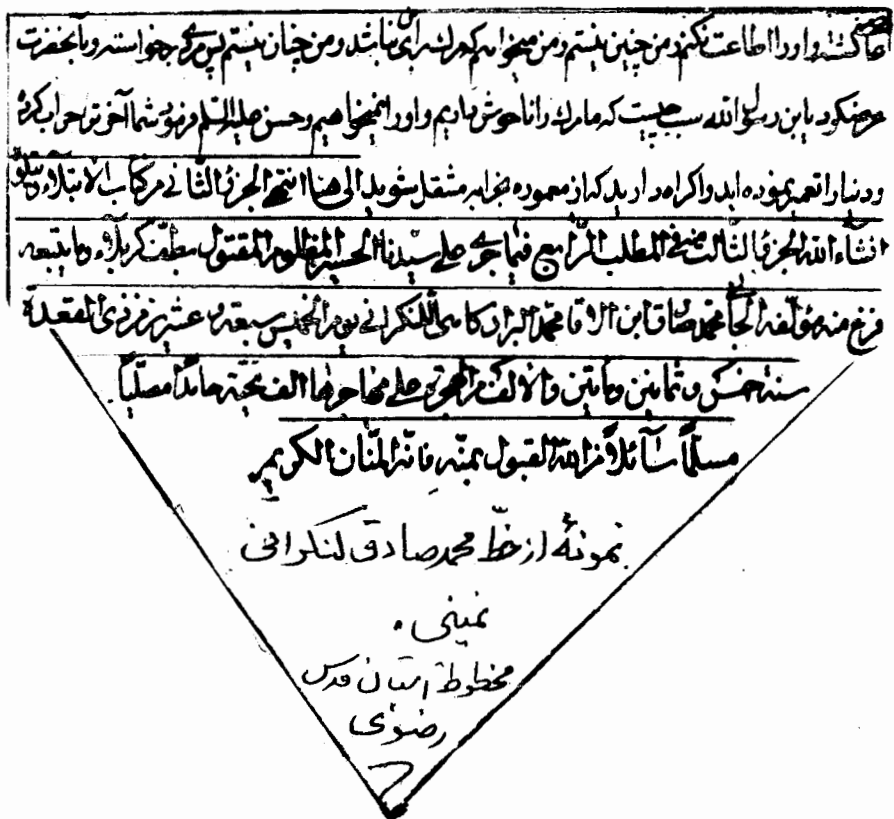 گشته و او را اطاعت نکنم و من چنین نیستم و من میخواهم که مرگ برای من باشد و من چنان نیستم پس مردی برخواسته و بآنحضرت
عرض کرد یابن رسول الله سبب چیست که ما مرگ را ناخوش داریم و او را نمیخواهیم و حسن علیه السلم فرمود شما آخرت را خراب کرده
و دنیا را تعمیر نموده اید و اکراه دارید که از معموره بخرابه منتقل شوید الی هنا انتهی الجزء الثانی من کتاب الابتلاء و یتلوه
انشاء الله الجزء الثالث منه فی المطلب الرابع فیما جری علی سیدنا الحسین المظلوم المقتول بطف کربلاء و ما یتبعه
فرغ منه مؤلفه الجانی محمد صادق ابن الاقا محمد اللنکرانی یوم الخمیس سبعة و عشرین من ذی القعدة
سنة خمس و ثمانین و مأتین و الالف من الهجرة علی مهاجرها الف تحیة حامداً مصلیاً
مسلماً سآئلاً من الله القبول بمنّه فانّه المنّان الکریم
نمونهٔ از خطّ محمد صادق لنکرانی
نمینی .
مخطوطهٔ آستان قدس
رضوی